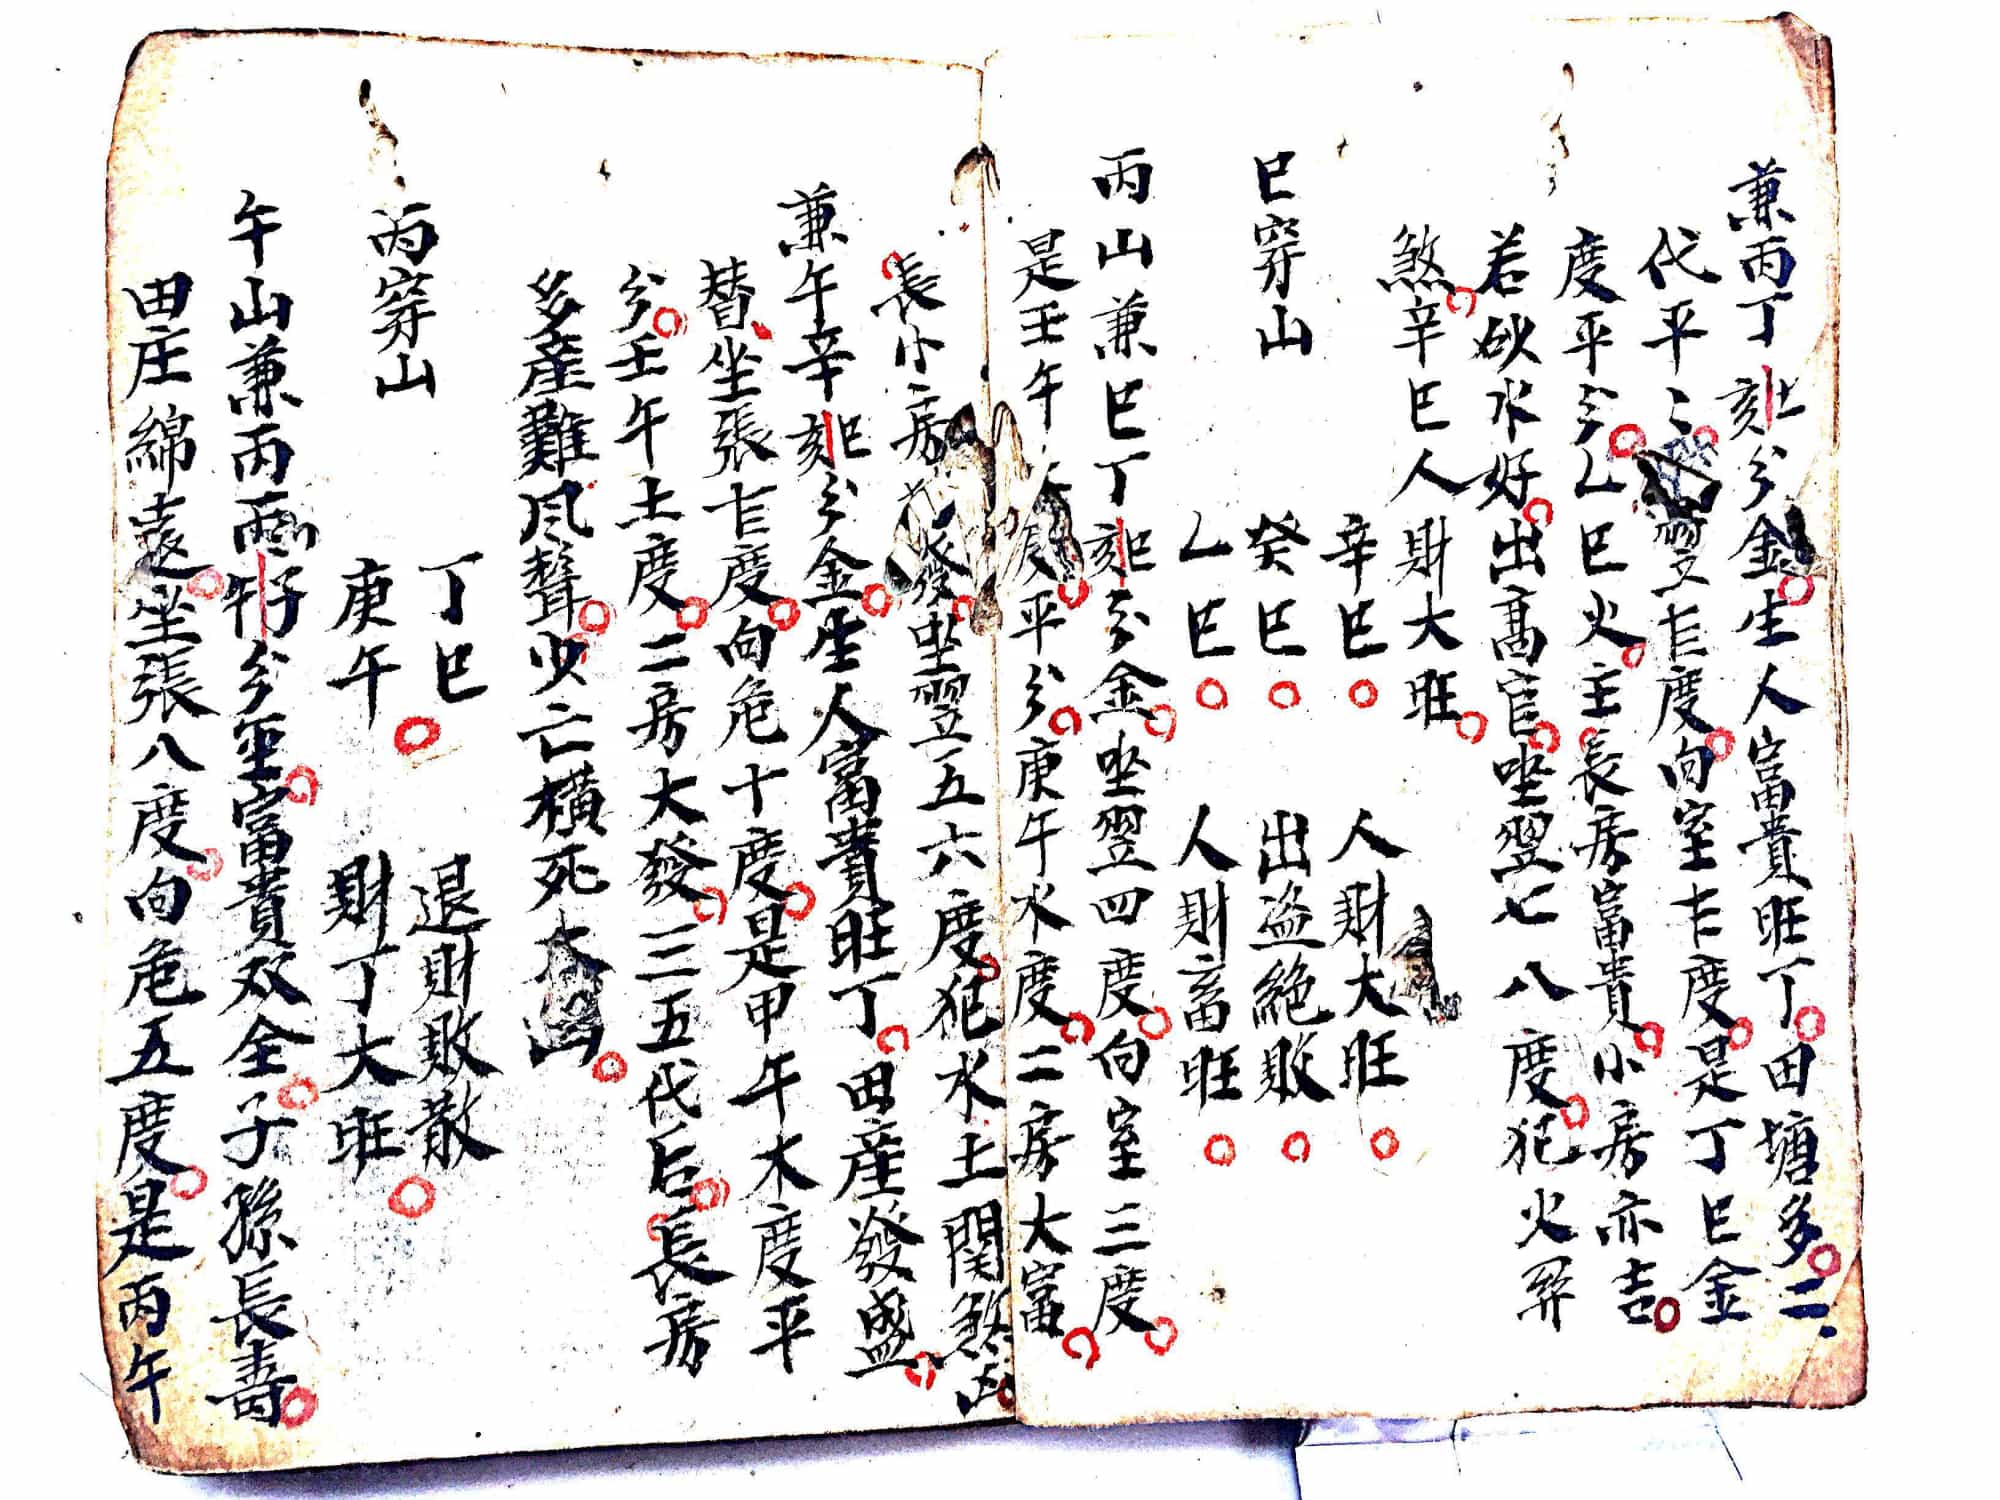 兼丙丁刻上分金生人富貴旺丁田塘多二
代平三翌七度向室七度是丁巳金
度平分乙巳火主長房富貴小房亦吉
若砍水好出高官坐翌七八度犯火羿
煞辛巳人財大旺
辛巳 人財大旺
巳穿山 癸巳 出盗絶敗
乙巳 人財畜旺
丙山兼巳丁刻巳分金坐翌四度向室三度
是壬午 度平分庚午水度二房大富
長小房 發坐翌五六度犯水土関煞凶
兼午辛刻巳分金生人富貴旺丁田産發盛
替坐張七度向危十度是甲午木度平
分壬午土度二房大發三五代后長房
多産難風聲少亡横死
丁巳 退財敗散
丙穿山 庚午 財丁大旺
午山兼丙 午子分金富貴双全子孫長壽
田庄綿遠坐張八度向危五度是丙午